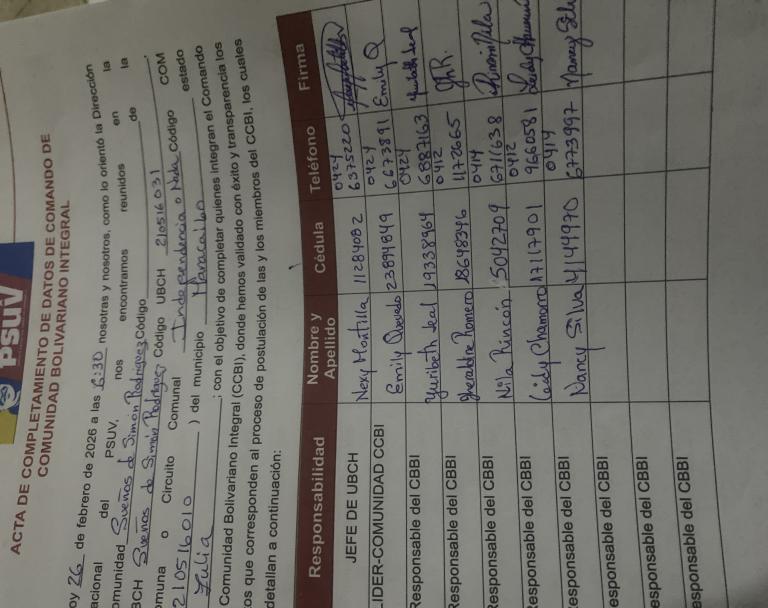 psuv
ACTA DE COMPLETAMIENTO DE DATOS DE COMANDO DE
COMUNIDAD BOLIVARIANO INTEGRAL
oy 26 de febrero de 2026 a las 6:30 nosotras y nosotros, como lo orientó la Dirección
acional del PSUV, nos encontramos reunidos en la
omunidad Sueños de Simón Rodríguez Código de la
BCH Sueños de Simón Rodríguez Código UBCH 210516031
omuna o Circuito Comunal Independencia o Nada Código COM
210516010 ) del municipio Maracaibo estado
Zulia ; con el objetivo de completar quienes integran el Comando
Comunidad Bolivariano Integral (CCBI), donde hemos validado con éxito y transparencia los
os que corresponden al proceso de postulación de las y los miembros del CCBI, los cuales
detallan a continuación:
Responsabilidad Nombre y Apellido Cédula Teléfono Firma
JEFE DE UBCH Nexy Montilla 11284082 0424 6375220
LIDER-COMUNIDAD CCBI Emily Quevedo 23894849 0424 6673891 Emily Q
Responsable del CBBI Yuribeth Leal 19338964 0424 6887163 Yuribeth Leal
Responsable del CBBI Gheraldine Romero 18648346 0412 1172665 Gh R.
Responsable del CBBI Nila Rincón 5042709 0414 6711638
Responsable del CBBI Leidy Chamorro 17117901 0412 9660581 Leidy Chamorro
Responsable del CBBI Nancy Silva 4144970 0414 6773997 Nancy Silva
esponsable del CBBI
esponsable del CBBI
esponsable del CBBI